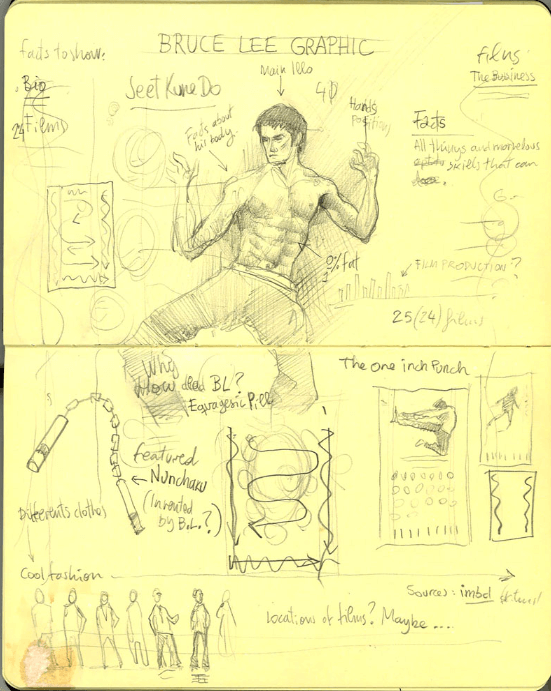 BRUCE LEE GRAPHIC
Facts to show:
Bio
24 Films
Jeet Kune Do
Main Illo
4D
Facts about
his body
Hands
Position
Films
The Bussiness
Facts
All things and marvelous
skills that can
0% fat
FILM PRODUCTION?
25(24) films
Why
How died BL?
Equagesic Pills
The one inch Punch
featured
Nunchaku
(Invented
by B.L.?)
Differents clothes
Cool fashion
Sources: imbd
Locations of films? Maybe ....